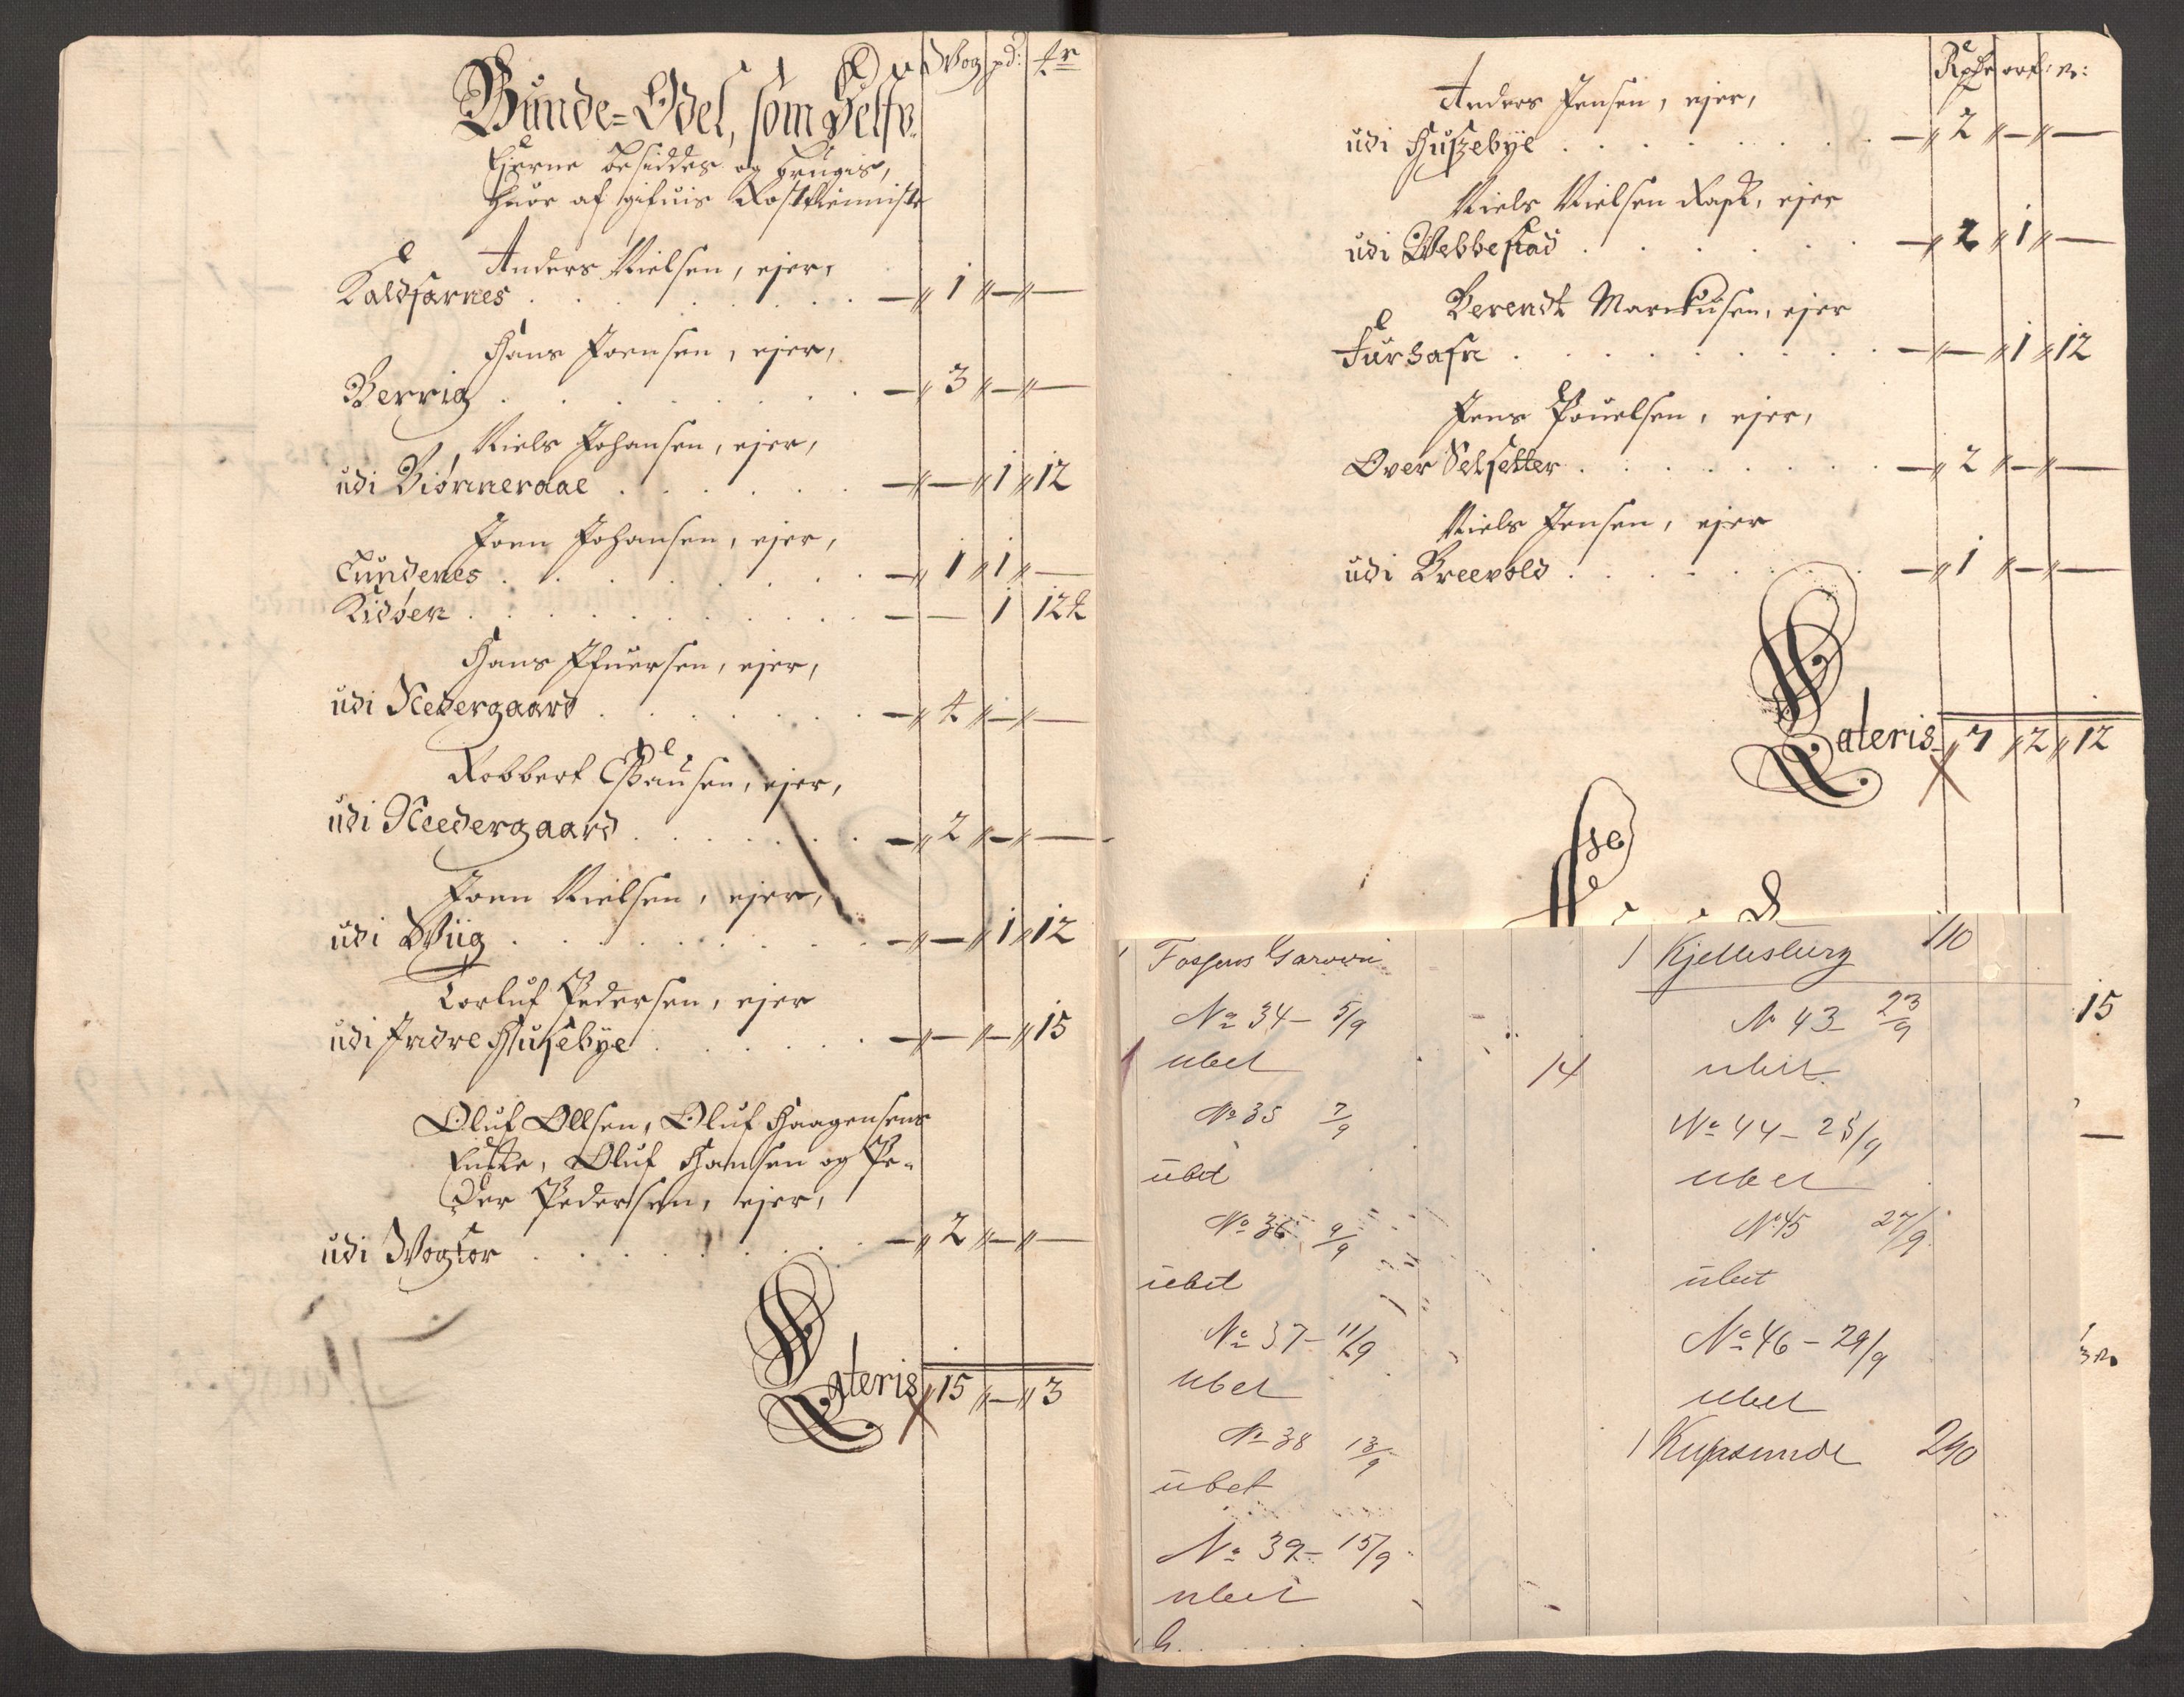 Wog pd: 
Bunde=Odel, som Selfv.
Ejerne besiddes og brugis,
Huor af gifuis Rostienniste
Anders Nielsen, ejer,
Kaldsarnes . . . — 1 — —
Hans Joensen, ejer,
Berrig . . . — 3 — —
Niels Johansen, ejer,
udi Biørneraae . . . — — 1 12
Joen Johansen, ejer,
Lundenes . . . — 1 1 —
Kidøen . . . — — 1 12
Hans Ifuersen, ejer,
udi Nedergaard . . . — 4 — —
Robbert Clausen, ejer,
udi Needergaard . . . — 2 — —
Joen Nielsen, ejer,
udi Wiig . . . — — 1 12
Torluf Pedersen, ejer
udi Indre Husebye . . . — — — 15
Oluf Ollsen, Oluf Haagensens
Encke, Oluf Hansen og Pe=
der Pedersen, ejer,
udi Wogsor . . . — 2 — —
Lateris 15 — 3
Anders Jensen, ejer,
udi Huszebye . . . — 2 — —
Niels Nielsen Rask, ejer
udi Webbestad . . . — 2 1 —
Berendt Marckusen, ejer
Furhafn . . . — — 1 12
Jens Pouelsen, ejer,
Over Selsetter . . . — 2 — —
Niels Jensen, ejer
udi Breevold . . . — 1 — —
Lateris 7 2 12
15
No 34 – 5/9
ubet
14
No 35 7/9
ubet
No 36 9/9
ubet
No 37 – 11/9
ubet
No 38 13/9
ubet
No 39 – 15/9
ubet
1 Kjellesburg 110
No 43 23/9
ubet
No 44 – 25/9
ubet
No 45 27/9
ubet
No 46 – 29/9
ubet
240